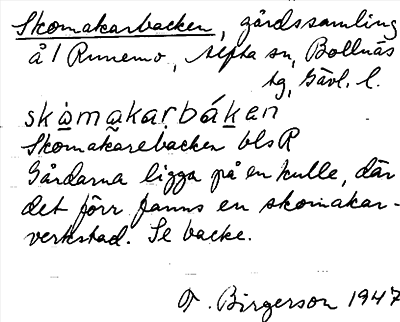 Skomakarbacken, gårdssamling
å 1 Runemo, Alfta sn, Bollnäs
tg, Gävl. l.
skòmakarbáken
Skomakarebacken bls R
Gårdarna ligga på en kulle, där
det förr fanns en skomakar-
verkstad. Se backe.
F. Birgerson 1947